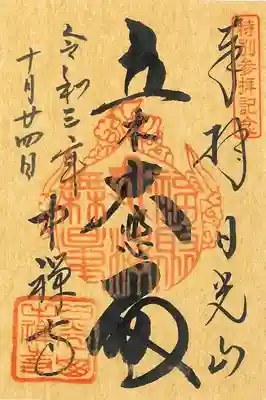 特別参拝記念
奉拝 日光山
立木大悲殿
中禅寺
令和三年
十月廿四日